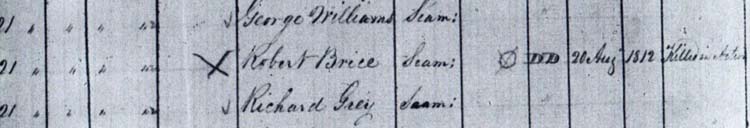 21 " " " " George Williams Seam:
21 " " " " X Robert Brice Seam: DD 20 Aug 1812 Killed in Action
21 " " " " Richard Grey Seam: